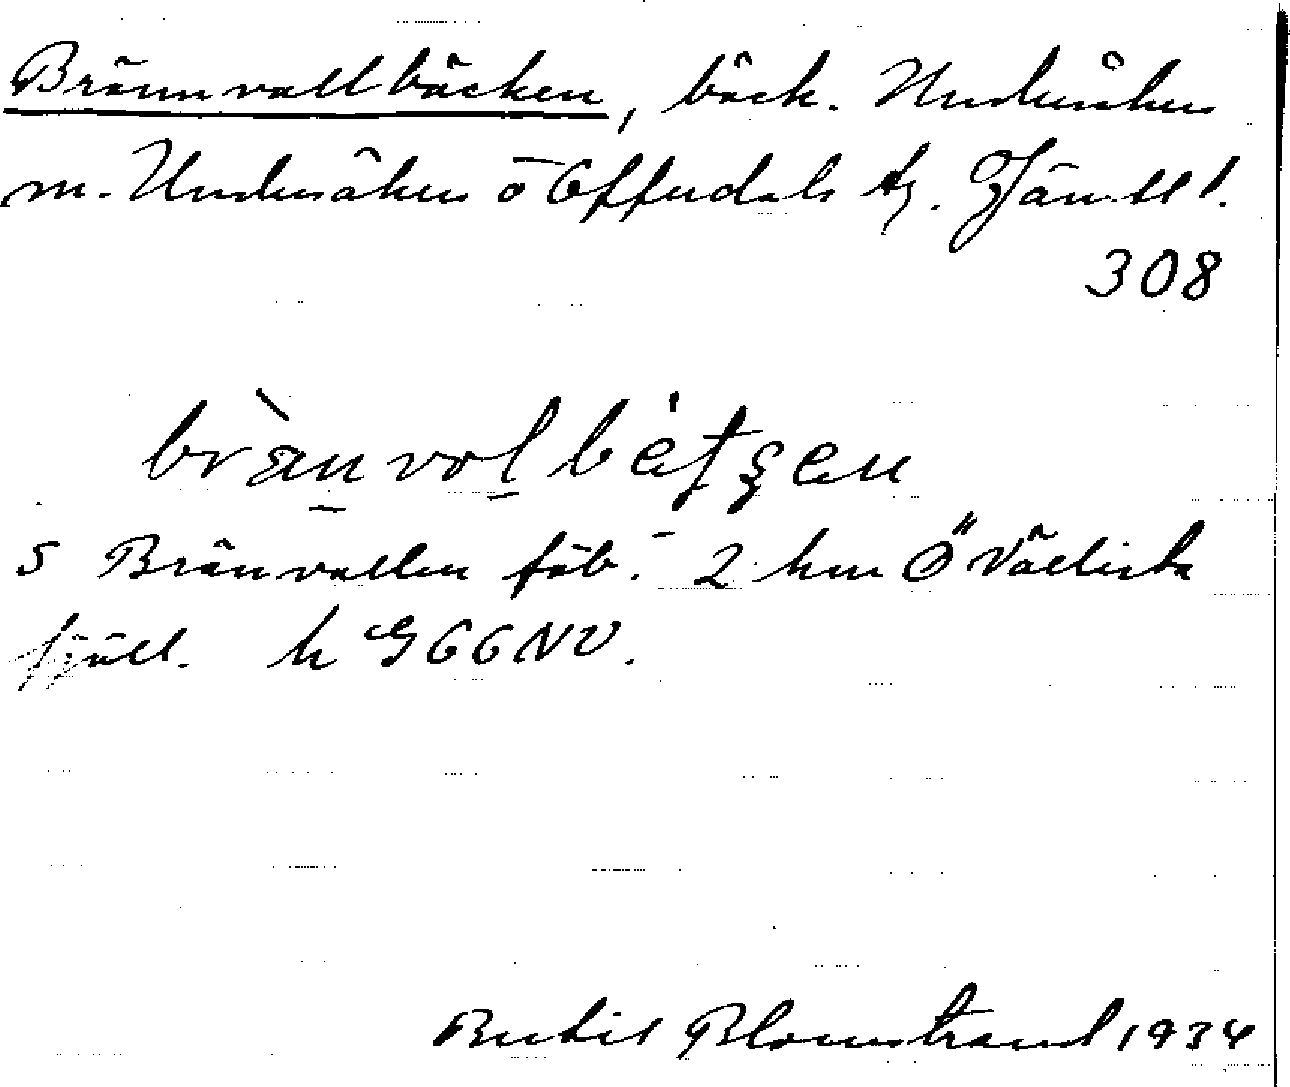 Brännvallbäcken, bäck. Undersåkers
m. Undersåkers o Offerdals tg. Jämtl l.
308
brä̀nvolbétʂen
S Brännvallen fäb. 2 km Ö Vällista
fjäll. k G66NV.
Bertil Blomstrand 1934